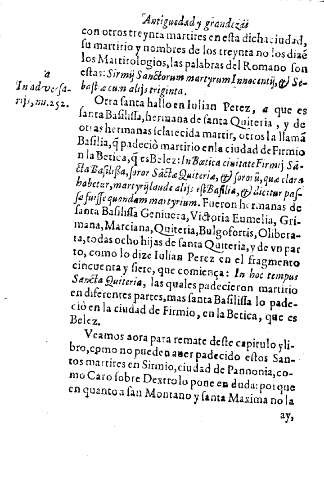 Antiguedad y grandezas
con otros treynta martires en esta dicha ciudad,
su martirio y nombres de los treynta no los dizē
los Martirologios, las palabras del Romano son
estas: Sirmij Sanctorum martyrum Innocentij, & Se-
bastiæ cum alijs triginta.
a
In adversa-
rijs, nu. 252.
Otra santa hallo en Iulian Perez, a que es
santa Basilissa, hermana de santa Quiteria, y de
otras hermanas esclarecida martir, otros la llamā
Basilia, q̄ padeciò martirio en la ciudad de Firmio
n la Betica, q̄ es Belez: In Bætica civitate Firmij Sā-
cta Basilissa, soror Sāctæ Quiteriæ, & soror ū, quæ clara
habetur, martyrij laude alijs est Basilia, & dicitur pas-
sa fuisse quondam martyrium. Fueron hermanas de
santa Basilissa Genivera, Victoria Eumelia, Gri-
mana, Marciana, Quiteria, Bulgofortis, Olibera-
ta, todas ocho hijas de santa Quiteria, y de vn par
to, como lo dize Iulian Perez en el fragmento
cincuenta y siete, que comiença: In hoc tempus
Sancta Quiteria, las quales padecieron martirio
en diferentes partes, mas santa Basilissa lo pade-
ciò en la ciudad de Firmio, en la Betica, que es
Belez.
Veamos aora para remate deste capitulo y li-
bro, como no pueden aver padecido estos San-
tos martires en Sirmio, ciudad de Pannonia, co-
mo Caro sobre Dextro lo pone en duda: porque
en quanto a san Montano y santa Maxima no la
ay,